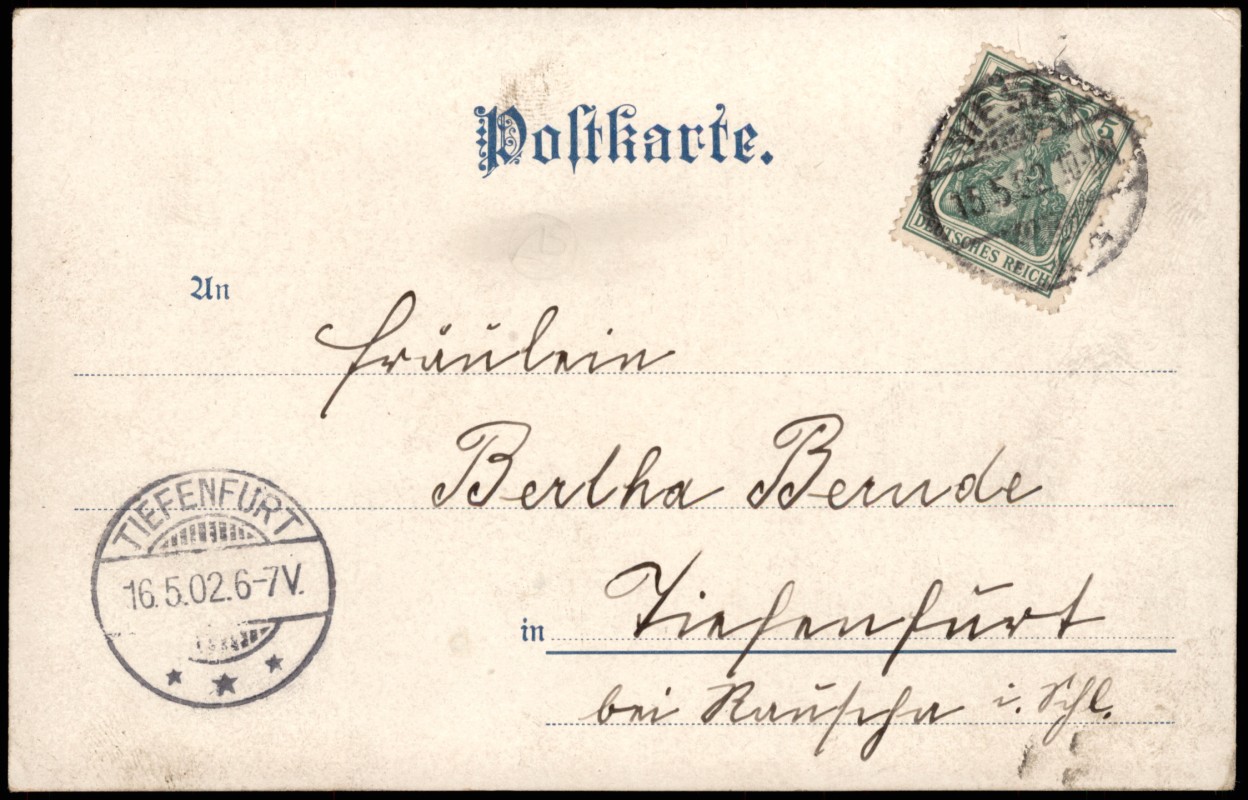 Postkarte.
5
15.5.02
DEUTSCHES REICH
An
Fräulein
Bertha Bernde
TIEFENFURT
16.5.02.6-7V.
in Tiefenfurt
bei Rauscha i. Schl.